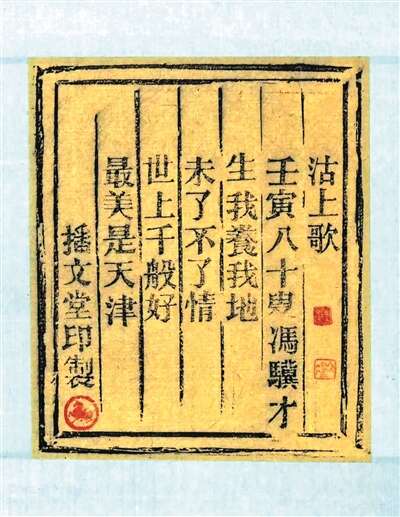 沽上歌
壬寅八十叟馮驥才
生我養我地
未了不了情
世上千般好
最美是天津
播文堂印製